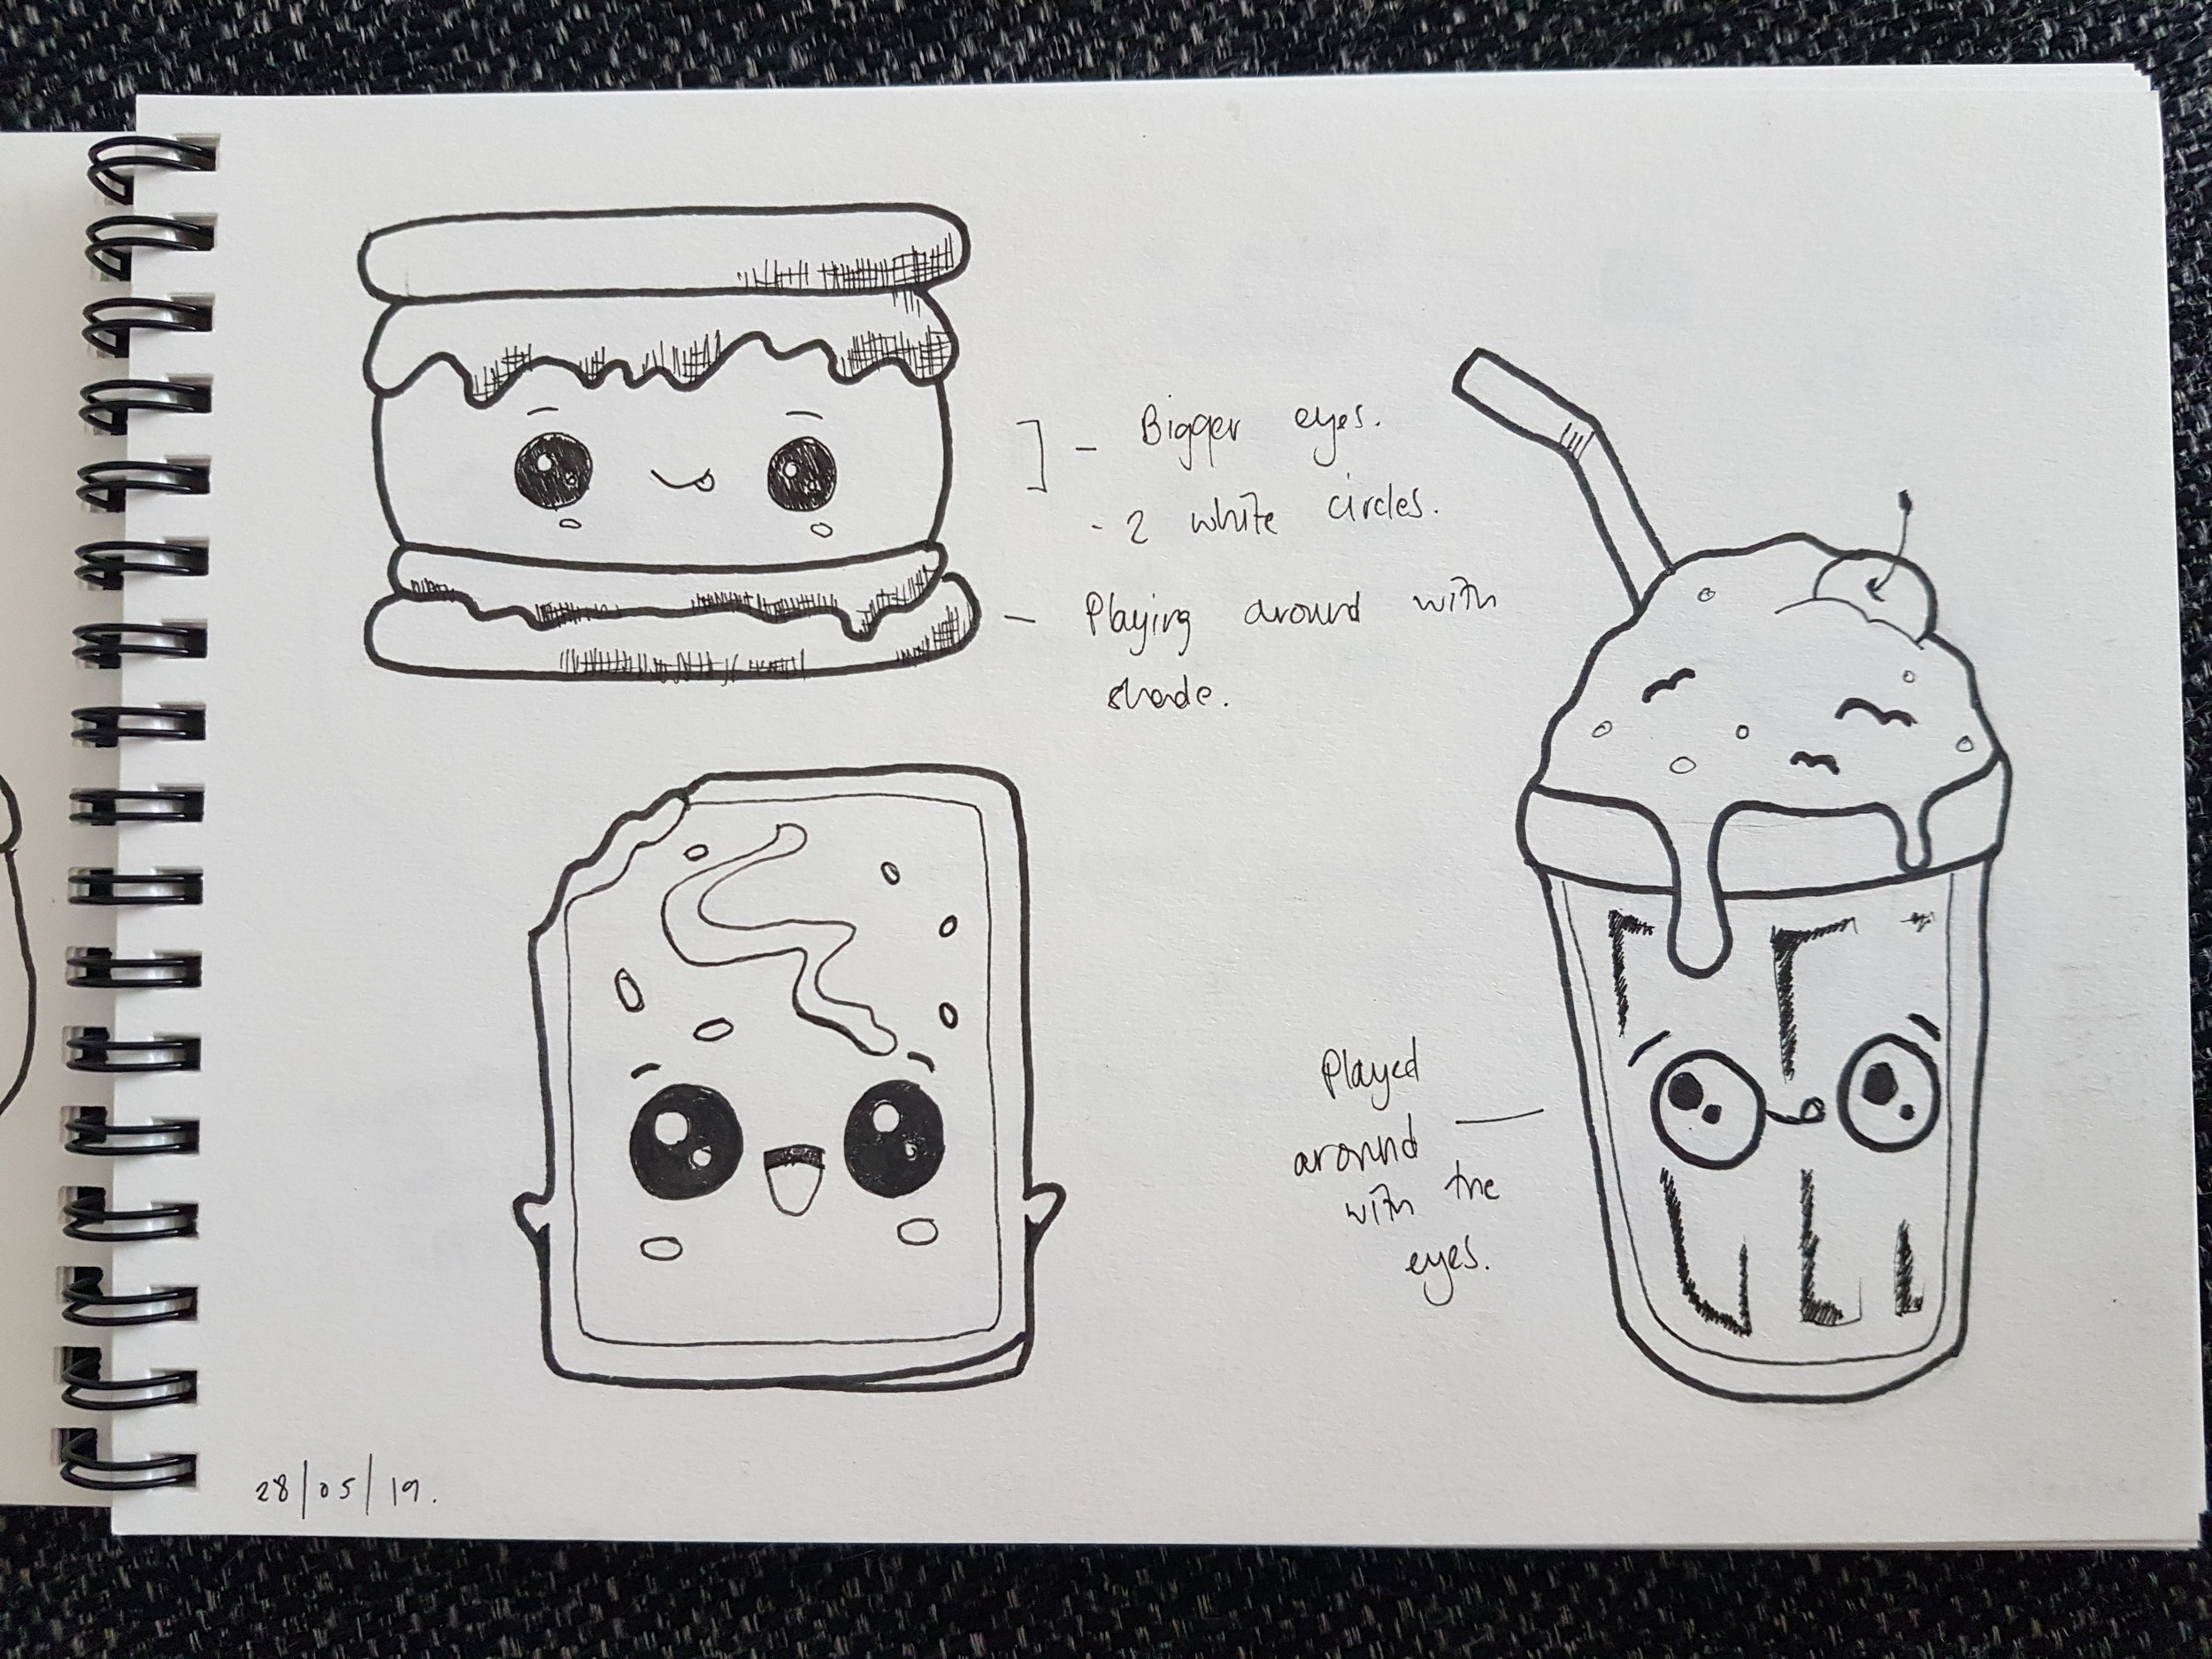 ] - Bigger eyes.
- 2 white circles.
- Playing around with
shade.
Played
around
with the
eyes.
28/05/19.